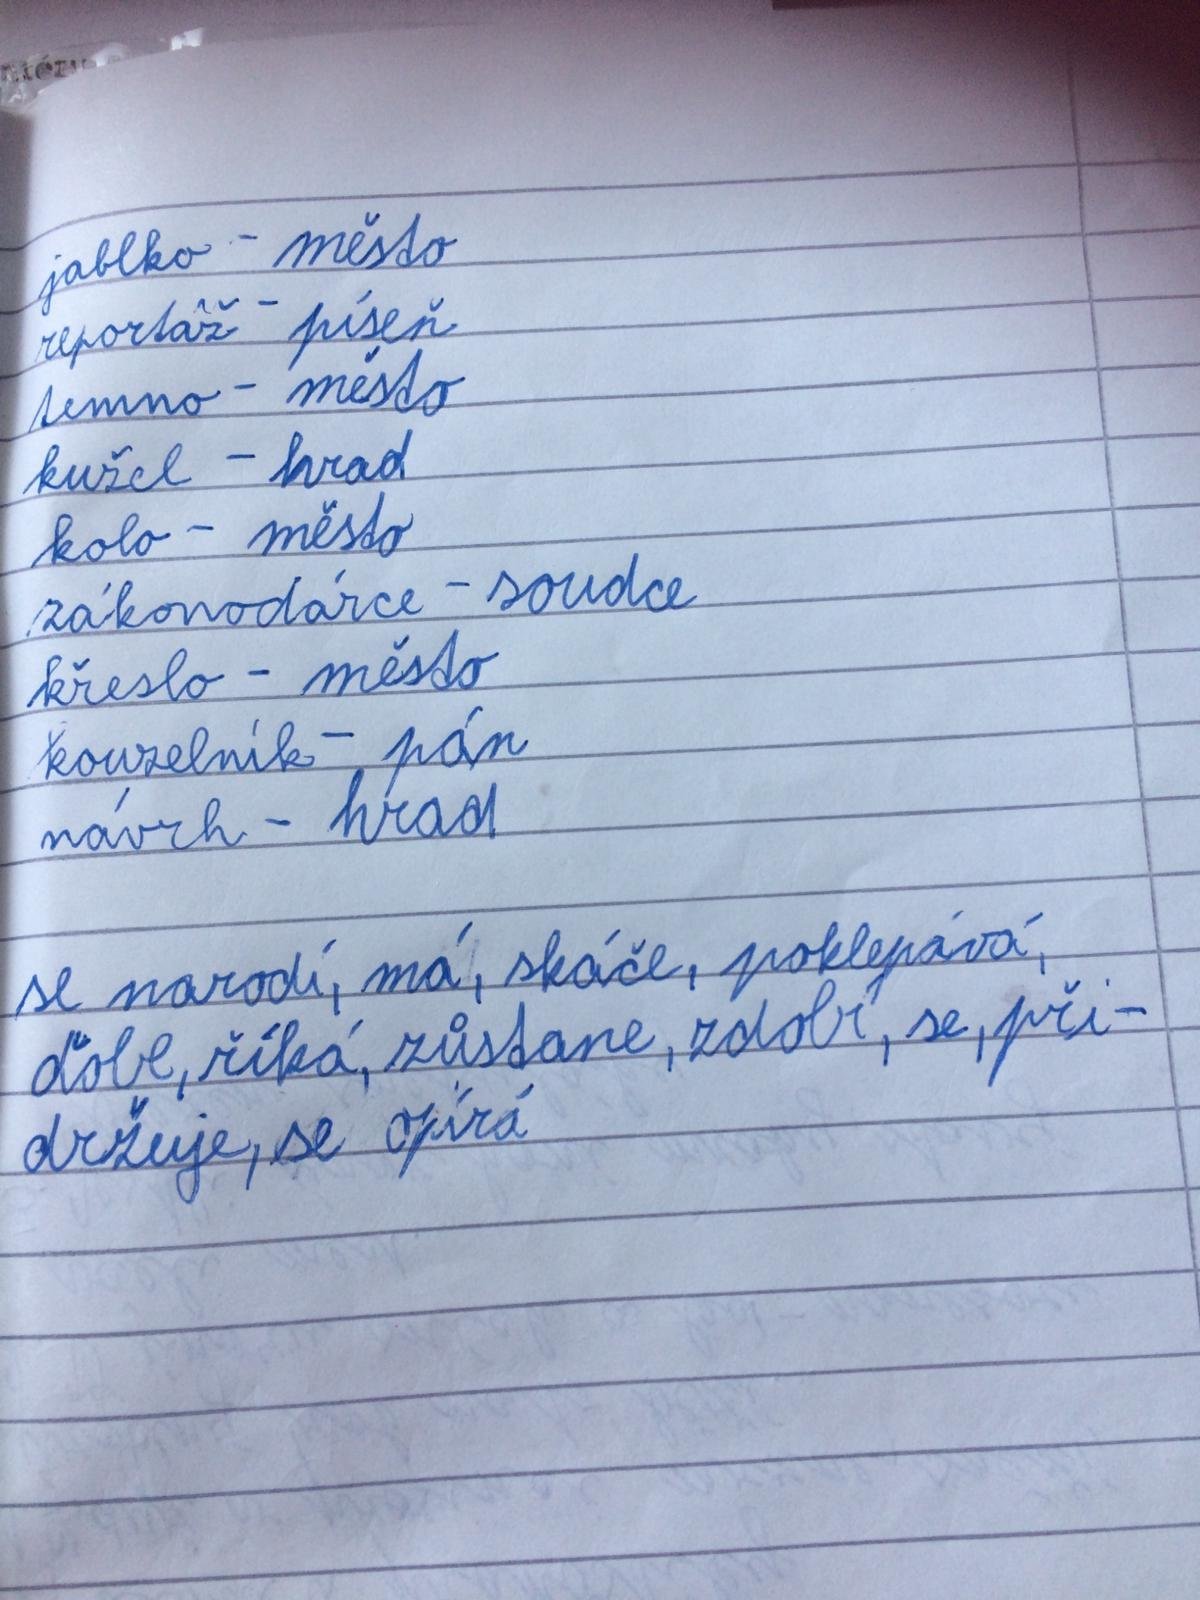 jablko - město
reportáž - píseň
temno - město
kužel - hrad
kolo - město
zákonodárce - soudce
křeslo - město
kouzelník - pán
návrh - hrad
se narodí, má, skáče, poklepává,
ďobe, říká, zůstane, zdobí, se, při-
držuje, se opírá